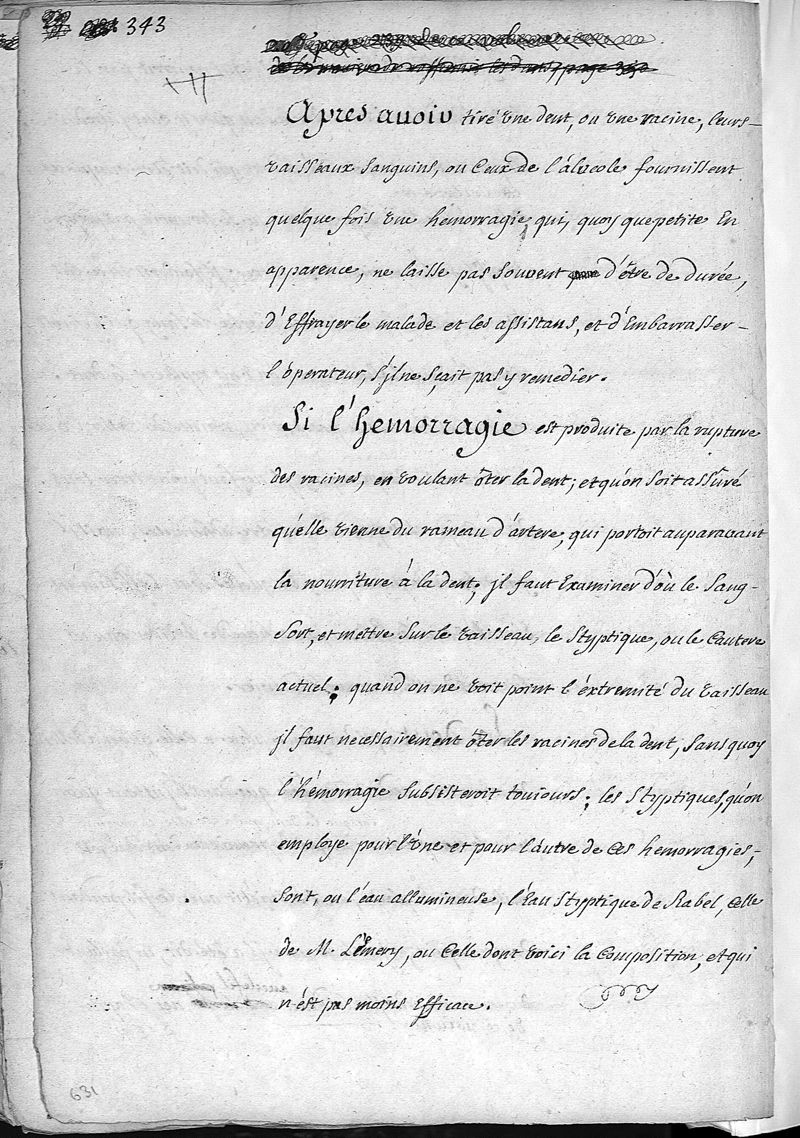 343
Apres auoir tiré vne dent, ou vne racine, leurs
vaisseaux sanguins, ou Ceux de l'álveole fournissent
quelque fois vne hemorragie, qui, quoy que petite En
apparence, ne laisse pas souvent d'être de durée,
d'Effrayer le malade et les assistans, et d'Embarrasser
l'óperateur, s'jl ne sçait pas y remedier.
Si l'hemorragie est produite par la rupture
des racines, en voulant ôter la dent; et qu'on soit assûré
qu'elle vienne du rameau d'ártere, qui portoit auparavant
la nourriture à la dent; jl faut Examiner d'où le sang
sort, et mettre sur le vaisseau, le styptique, ou le Cautere
actuel; quand on ne voit point l'éxtremité du vaisseau
jl faut necessairement ôter les racines de la dent, sans quoy
l'hémorragie subsisteroit toujours; les styptiques, qu'on
employe pour l'vne et pour l'áutre de Ces hemorragies,
sont, ou l'eau allumineuse, l'Eau styptique de Rabel, Celle
de M. Lémery, ou Celle dont voici la Composition, et qui
n'ést pas moins Efficace.
631